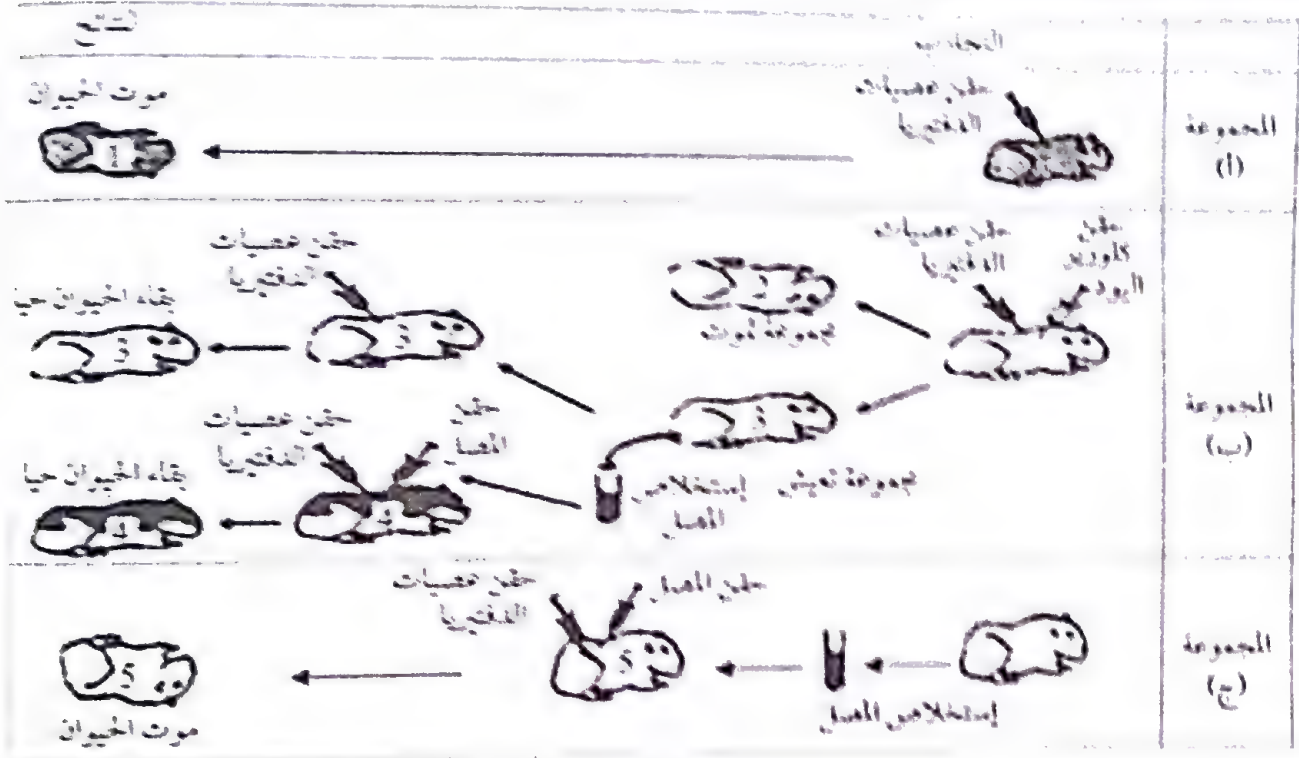 التجارب
النتائج
المجموعة
(أ)
حقن عصيات
الدفتيريا
1
موت الحيوان
المجموعة
(ب)
حقن
كلورير
اليود
حقن عصيات
الدفتيريا
2
مجموعة تموت
3
مجموعة تعيش
إستخلاص
المصل
حقن عصيات
الدفتيريا
3
بقاء الحيوان حيا
3
حقن
المصل
حقن عصيات
الدفتيريا
4
بقاء الحيوان حيا
4
المجموعة
(ج)
إستخلاص المصل
حقن المصل
حقن عصيات
الدفتيريا
5
5
موت الحيوان